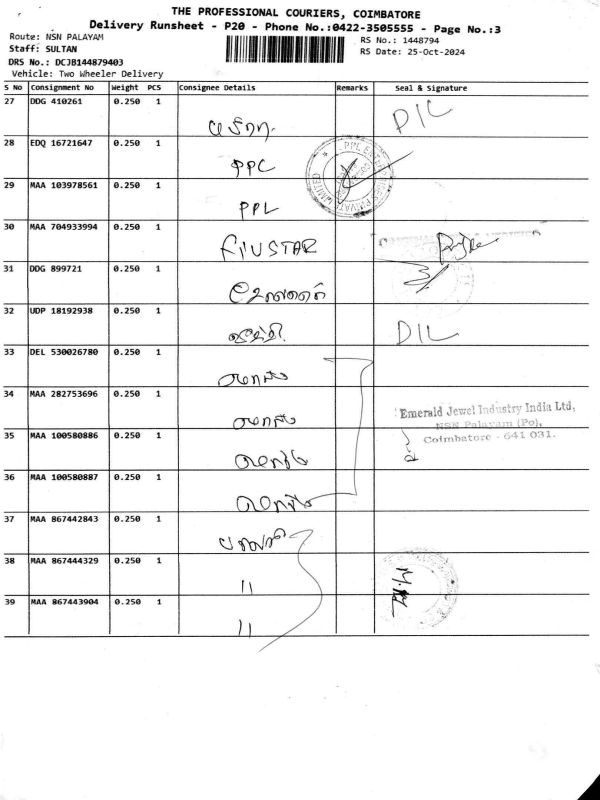 THE PROFESSIONAL COURIERS, COIMBATORE
Delivery Runsheet - P20 - Phone No.:0422-3505555 - Page No.:3
Route: NSN PALAYAM
RS No.: 1448794
Staff: SULTAN
RS Date: 25-Oct-2024
DRS No.: DCJB144879403
Vehicle: Two Wheeler Delivery
S No Consignment No Weight PCS Consignee Details Remarks Seal & Signature
27 DDG 410261 0.250 1 D/L
28 EDQ 16721647 0.250 1 PPC
29 MAA 103978561 0.250 1 PPL
30 MAA 704933994 0.250 1 FIVSTAR
31 DDG 899721 0.250 1
32 UDP 18192938 0.250 1 D/L
33 DEL 530026780 0.250 1
34 MAA 282753696 0.250 1
Emerald Jewel Industry India Ltd,
NSN Palayam (Po),
Coimbatore - 641 031.
35 MAA 100580886 0.250 1
36 MAA 100580887 0.250 1
37 MAA 867442843 0.250 1
38 MAA 867444329 0.250 1 11
39 MAA 867443904 0.250 1 11